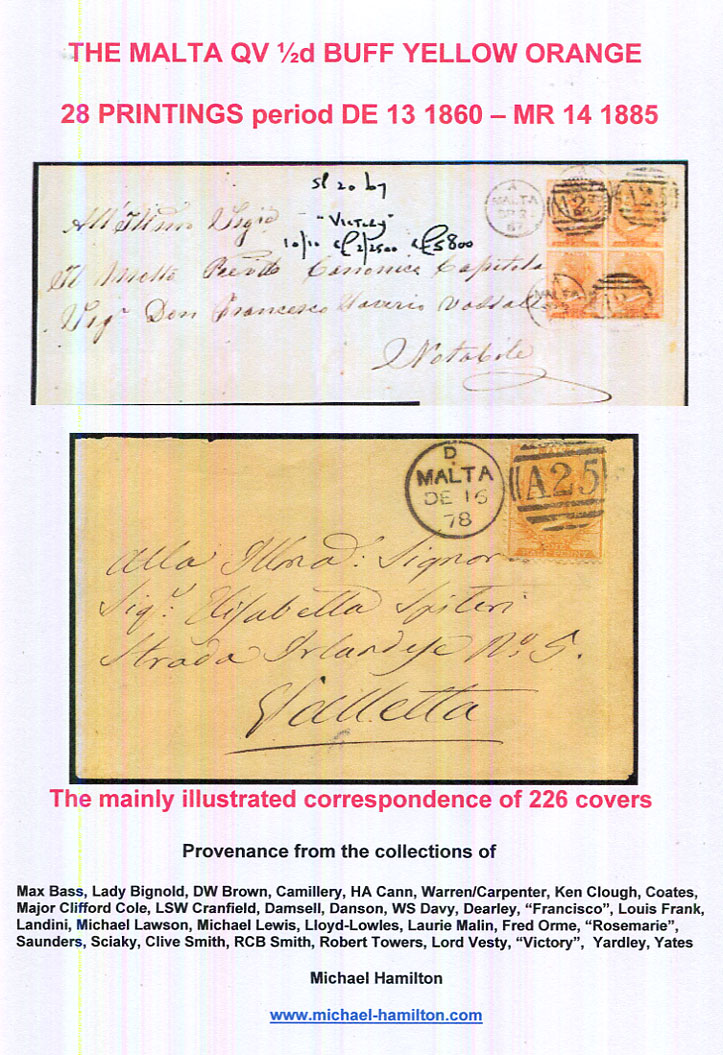 THE MALTA QV ½d BUFF YELLOW ORANGE
28 PRINTINGS period DE 13 1860 – MR 14 1885
"VICTORY"
10/10 £2/2500 £5800
A
MALTA
67
A25
A25
MALTA
All'
Don Francesco Saverio Vassallo
Notabile
D
MALTA
DE 16
78
A25
HALFPENNY
Alla Illma: Signora
Sigra: Elisabetta Spiteri
Strada Irlandese No: 5.
Valletta
The mainly illustrated correspondence of 226 covers
Provenance from the collections of
Max Bass, Lady Bignold, DW Brown, Camillery, HA Cann, Warren/Carpenter, Ken Clough, Coates,
Major Clifford Cole, LSW Cranfield, Damsell, Danson, WS Davy, Dearley, “Francisco”, Louis Frank,
Landini, Michael Lawson, Michael Lewis, Lloyd-Lowles, Laurie Malin, Fred Orme, “Rosemarie”,
Saunders, Sciaky, Clive Smith, RCB Smith, Robert Towers, Lord Vesty, “Victory”, Yardley, Yates
Michael Hamilton
www.michael-hamilton.com